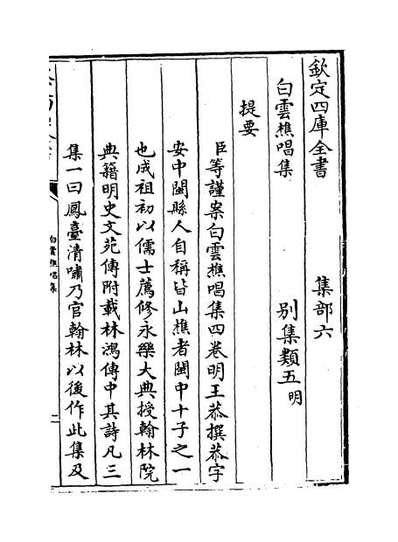 欽定四庫全書　集部六
白雲樵唱集　別集類五 明
提要
臣等謹案白雲樵唱集四卷明王恭撰恭字
安中閩縣人自稱皆山樵者閩中十子之一
也成祖初以儒士薦修永樂大典授翰林院
典籍明史文苑傳附載林鴻傳中其詩凡三
集一曰鳳臺清嘯乃官翰林以後作此集及
白雲樵唱集